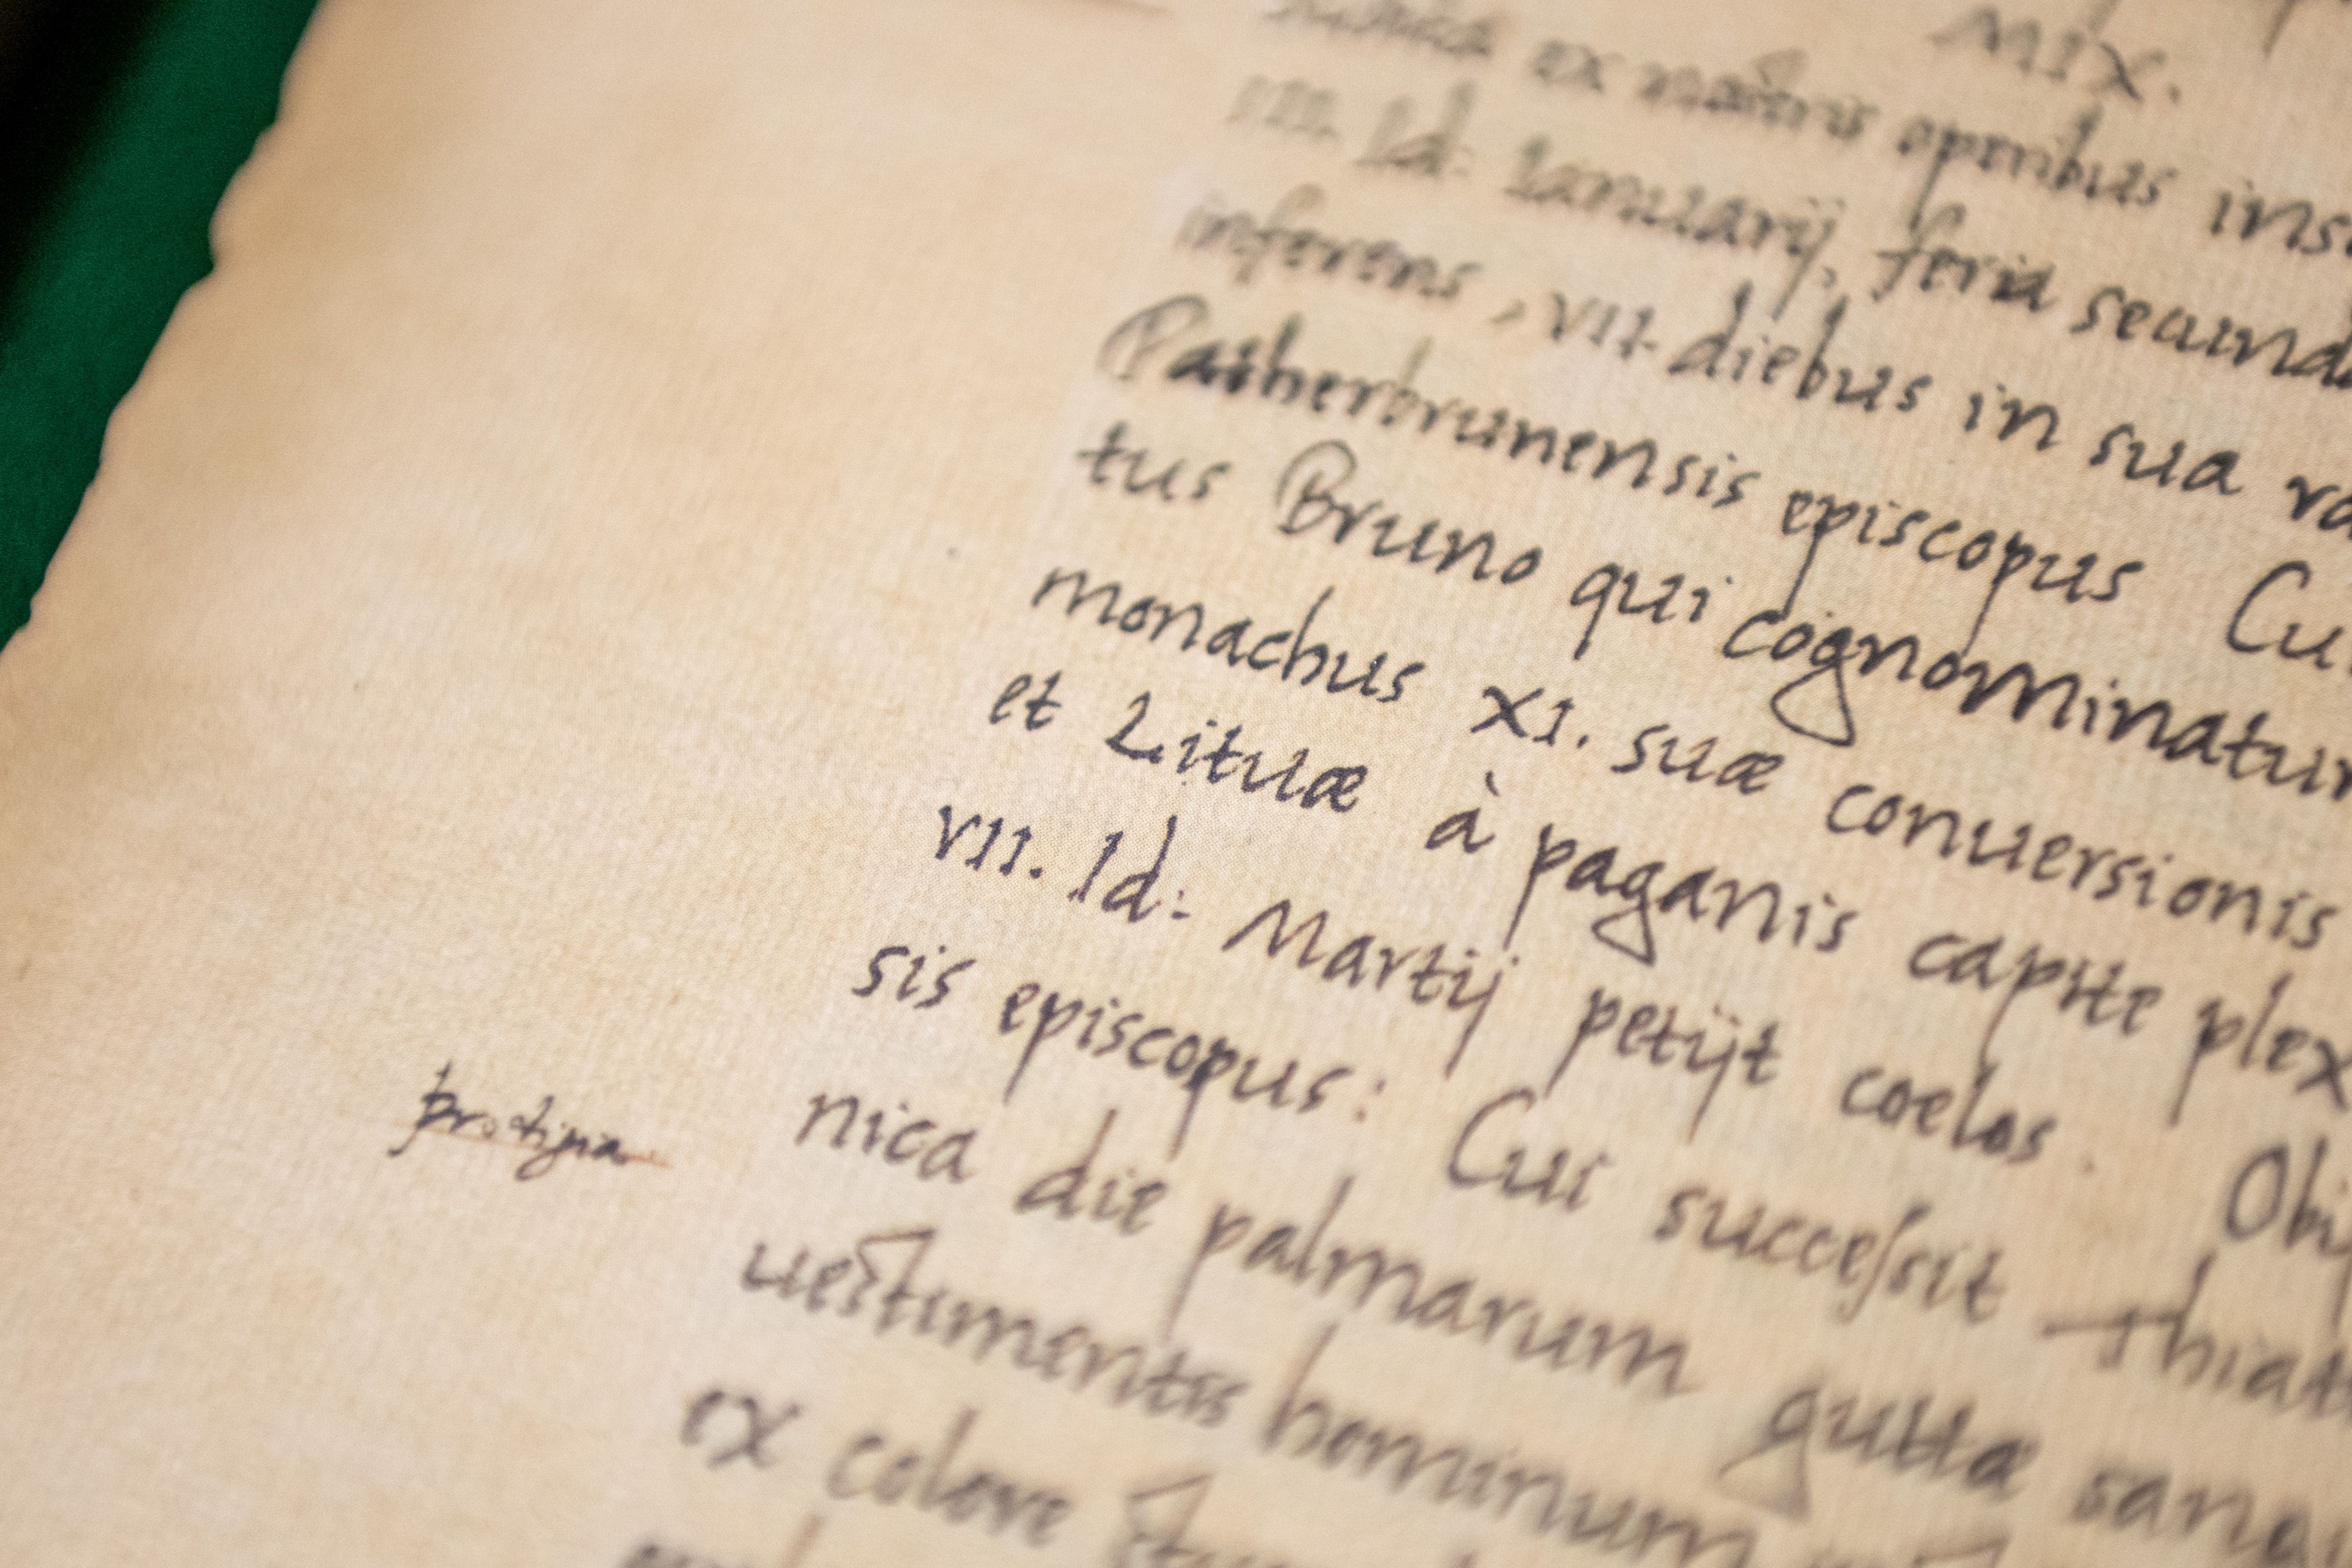 MIX.
ex operibus ins
Id: Ianuarij, feria secund
inferens, VII diebus in sua
Patherbrunensis episcopus Cu
tus Bruno qui cognominatur
monachus XI. suæ conuersionis
et Lituæ à paganis capite plex
VII. Id: Martij petijt coelos. Obi
sis episcopus: Cui succeſsit Thiat
nica die palmarum guttæ sang
prodigia
uestimentis hominum
ex colore